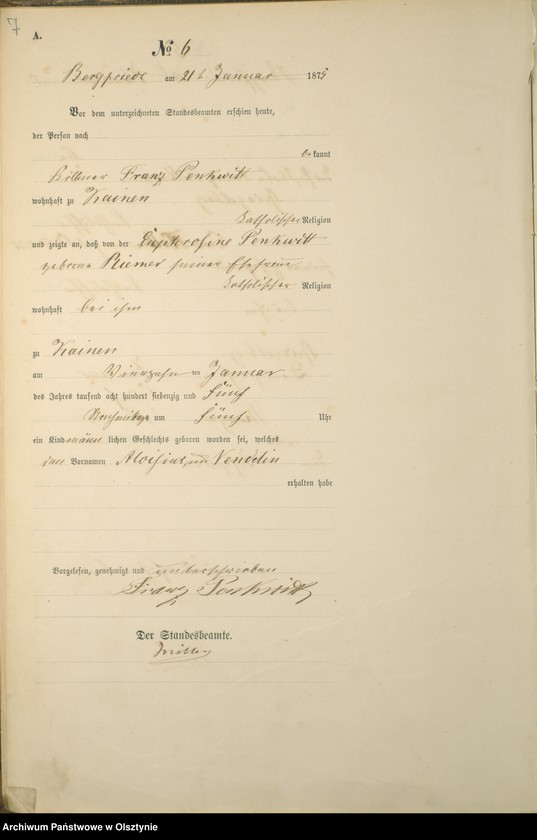 7
A.
No 6
Bergfriede am 21t Januar 1875
Vor dem unterzeichneten Standesbeamten erschien heute,
der Person nach
be kannt
Köllmer Franz Penkwitt
wohnhaft zu Kainen
katholischer Religion
und zeigte an, daß von der Euphrosine Penkwitt
geborne Riemer seiner Ehefrau
katholischer Religion
wohnhaft bei ihm
zu Kainen
am Vierzehn ten Januar
des Jahres tausend acht hundert siebenzig und Fünf
Nachmittags um Fünf Uhr
ein Kind männ lichen Geschlechts geboren worden sei, welches
den Vornamen Aloisius, und
erhalten habe
Vorgelesen, genehmigt und unterschrieben
Franz Penkwitt
Der Standesbeamte.
Archiwum Państwowe w Olsztynie